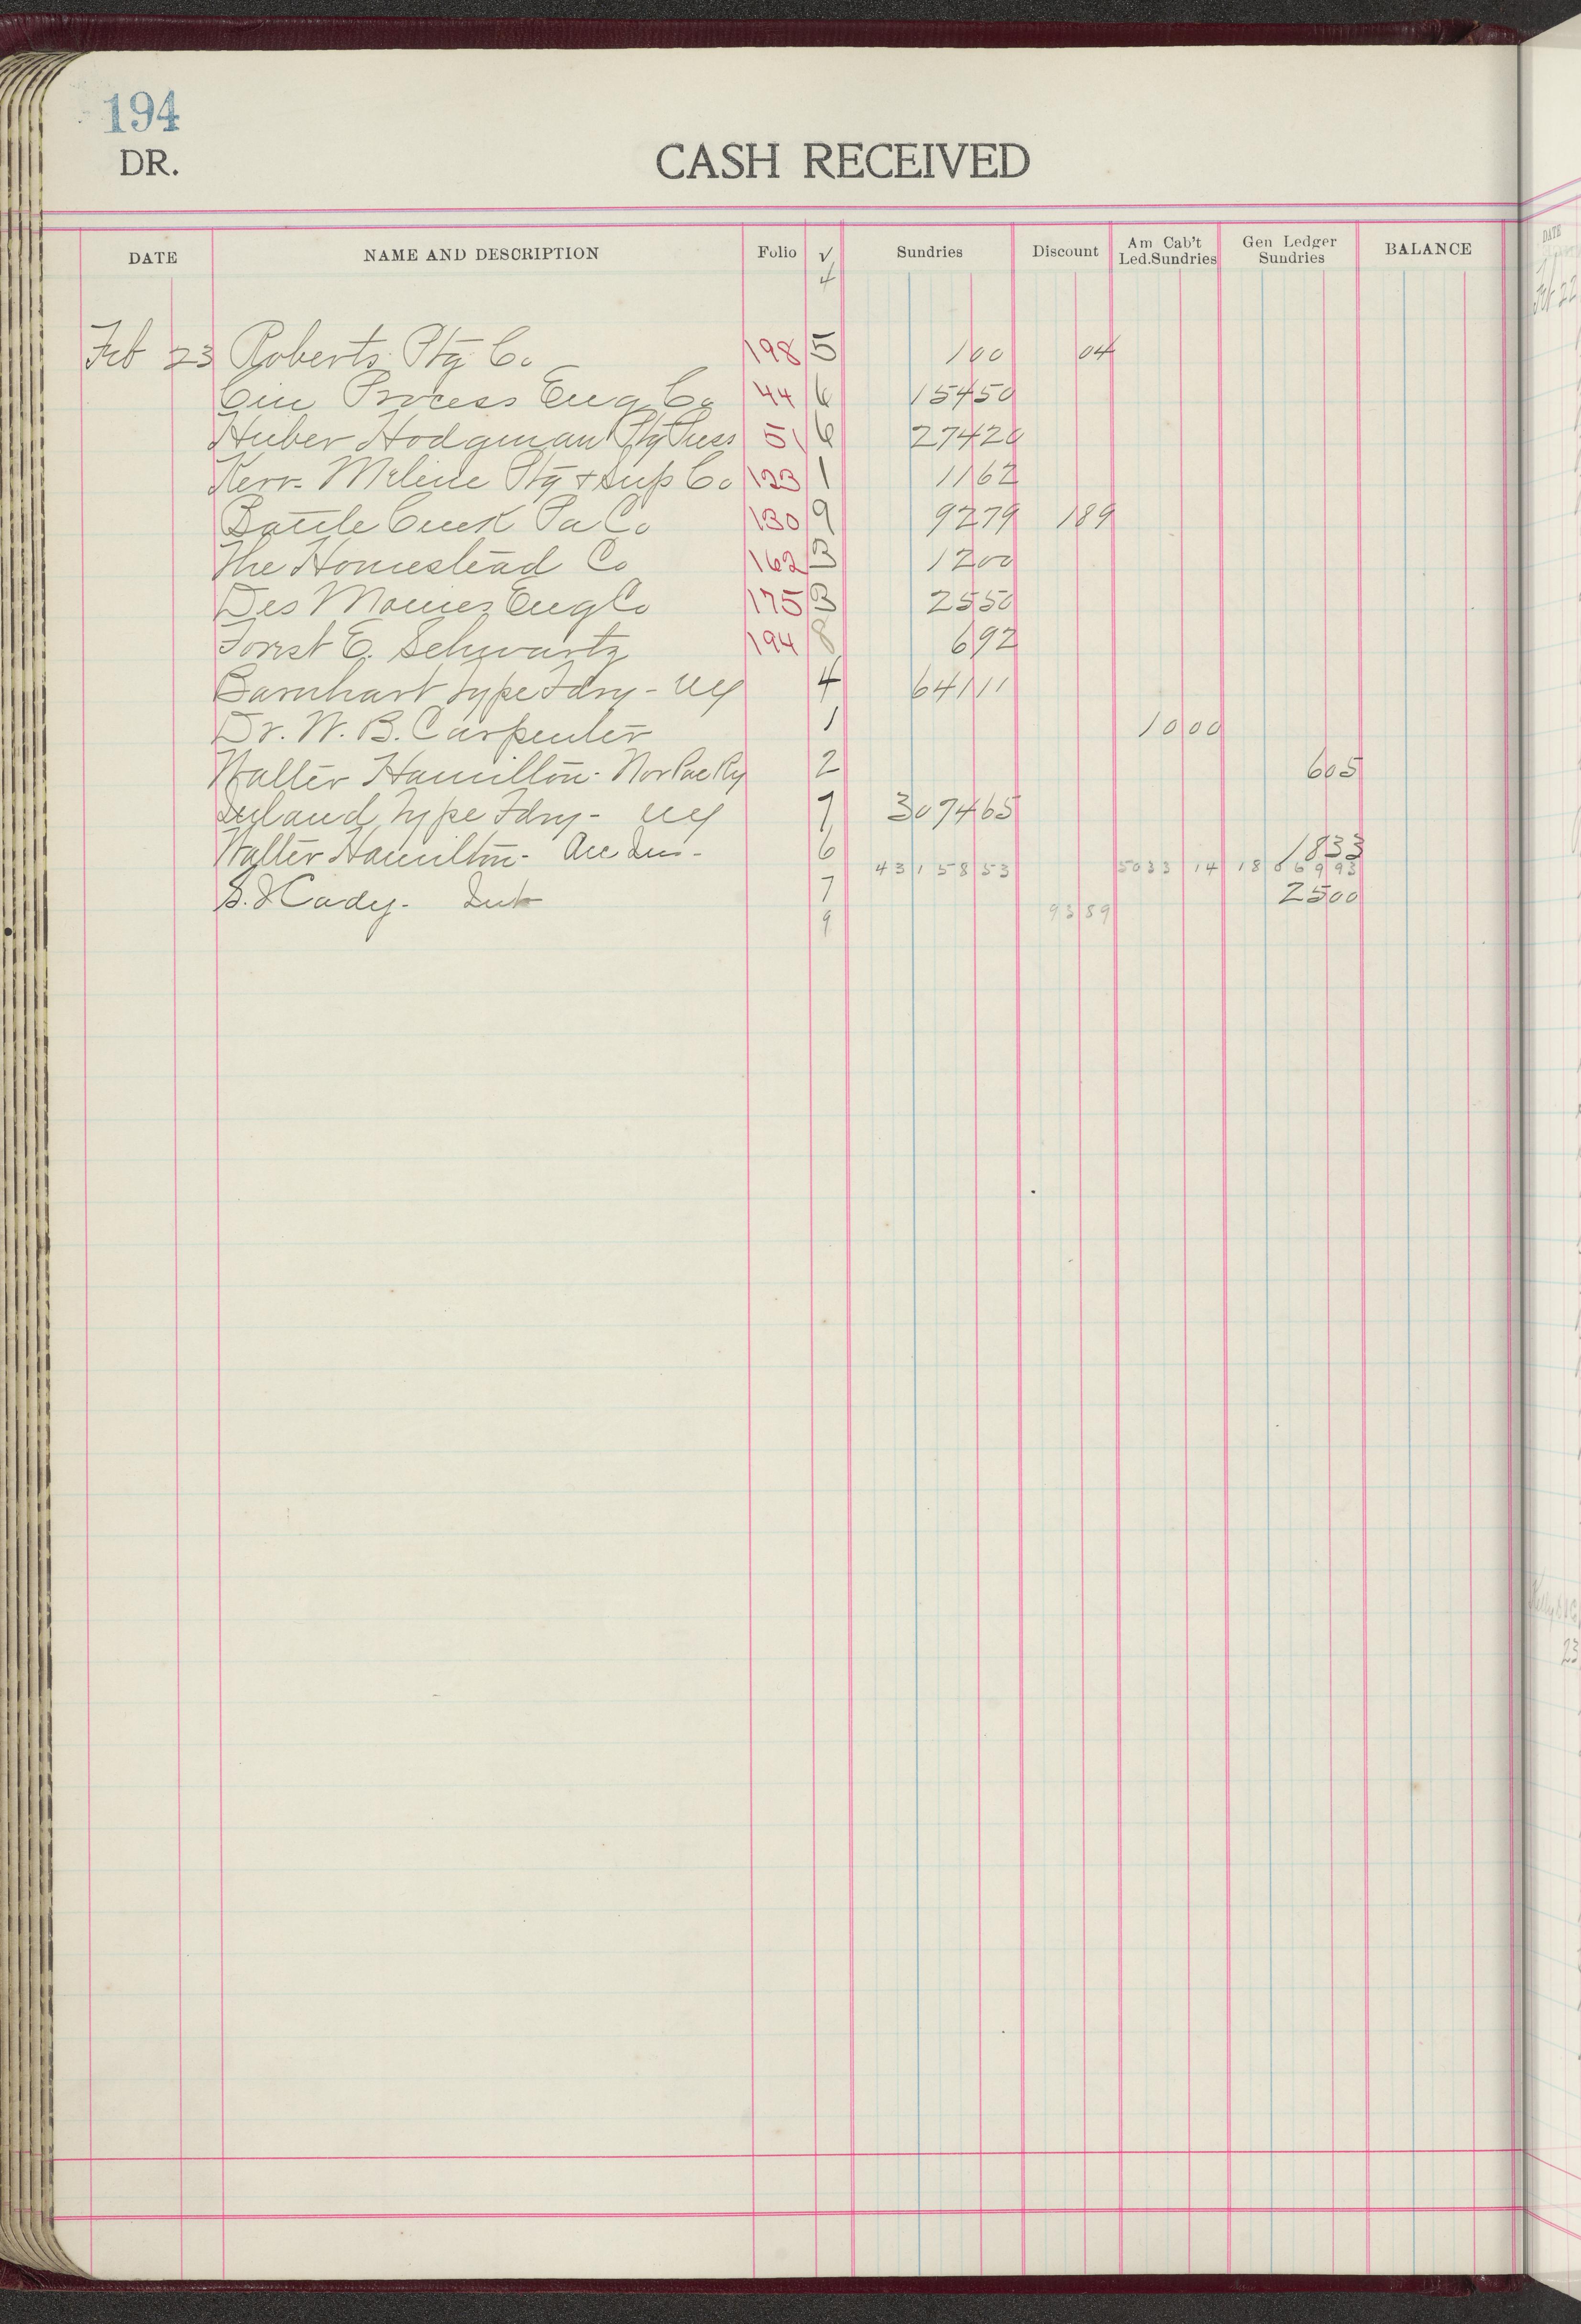 194
DR.
CASH RECEIVED
DATE NAME AND DESCRIPTION Folio √ Sundries Discount Am Cab't Led.Sundries Gen Ledger Sundries BALANCE
4
Feb 23 Roberts Ptg Co 198 5 100 04
Cin Process Eng Co 44 6 15450
Huber Hodgman Ptg Press 51 6 27420
Kerr- Ptg + Sup Co 123 1 1162
Battle Creek Pa Co 130 9 9279 189
The Homestead Co 162 3 1200
Des Moines Eng Co 175 3 2550
Forest E. Schwartz 194 8 692
Barnhart Type Fdry - 4 64111
Dr. W. B. Carpenter 1 1000
Walter Hamilton - Nor Pac Ry 2 605
Inland Type Fdry - 7 307465
Walter Hamilton - Acc Ins - 6 1833
4315853 503314 1806993
S. J Cady - Int 7 2500
9 9359
DATE
Feb 22
23